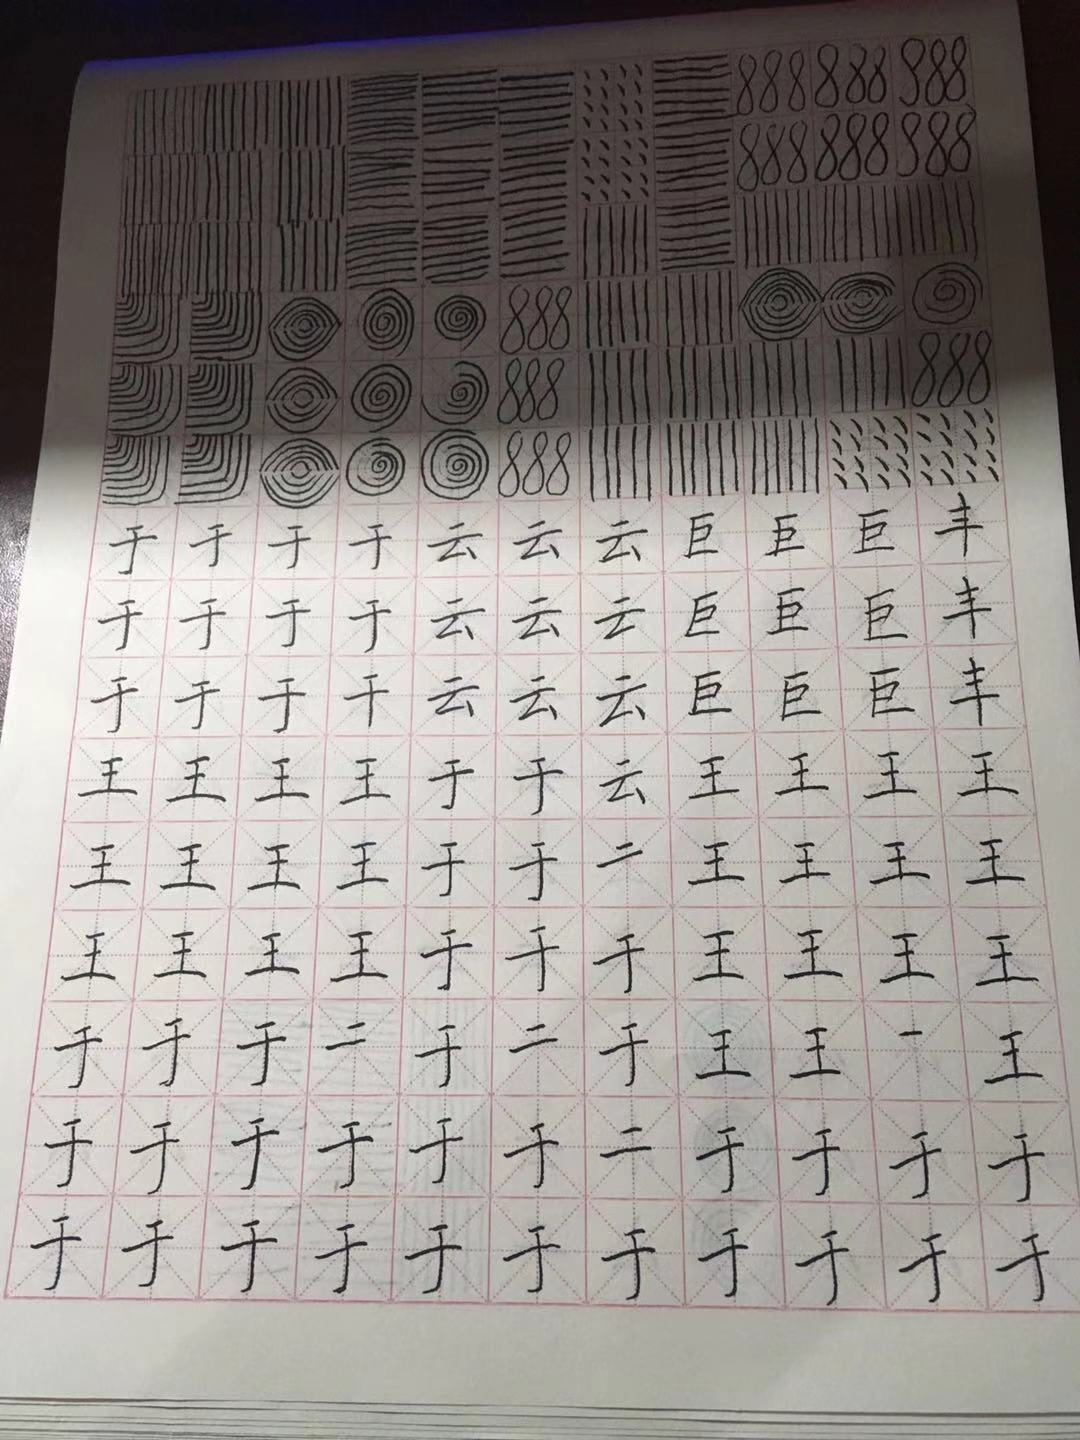 888 888 888
888 888 888
888
888 888
888
于 于 于 于 云 云 云 巨 巨 巨 丰
于 于 于 于 云 云 云 巨 巨 巨 丰
于 于 于 干 云 云 云 巨 巨 巨 丰
王 王 王 王 于 于 云 王 王 王 王
王 王 王 王 于 于 二 王 王 王 王
王 王 王 王 于 干 于 王 王 王 王
于 于 于 二 于 二 于 王 王 一 王
于 于 于 于 于 于 二 于 于 于 于
于 于 于 于 于 于 于 于 于 于 于